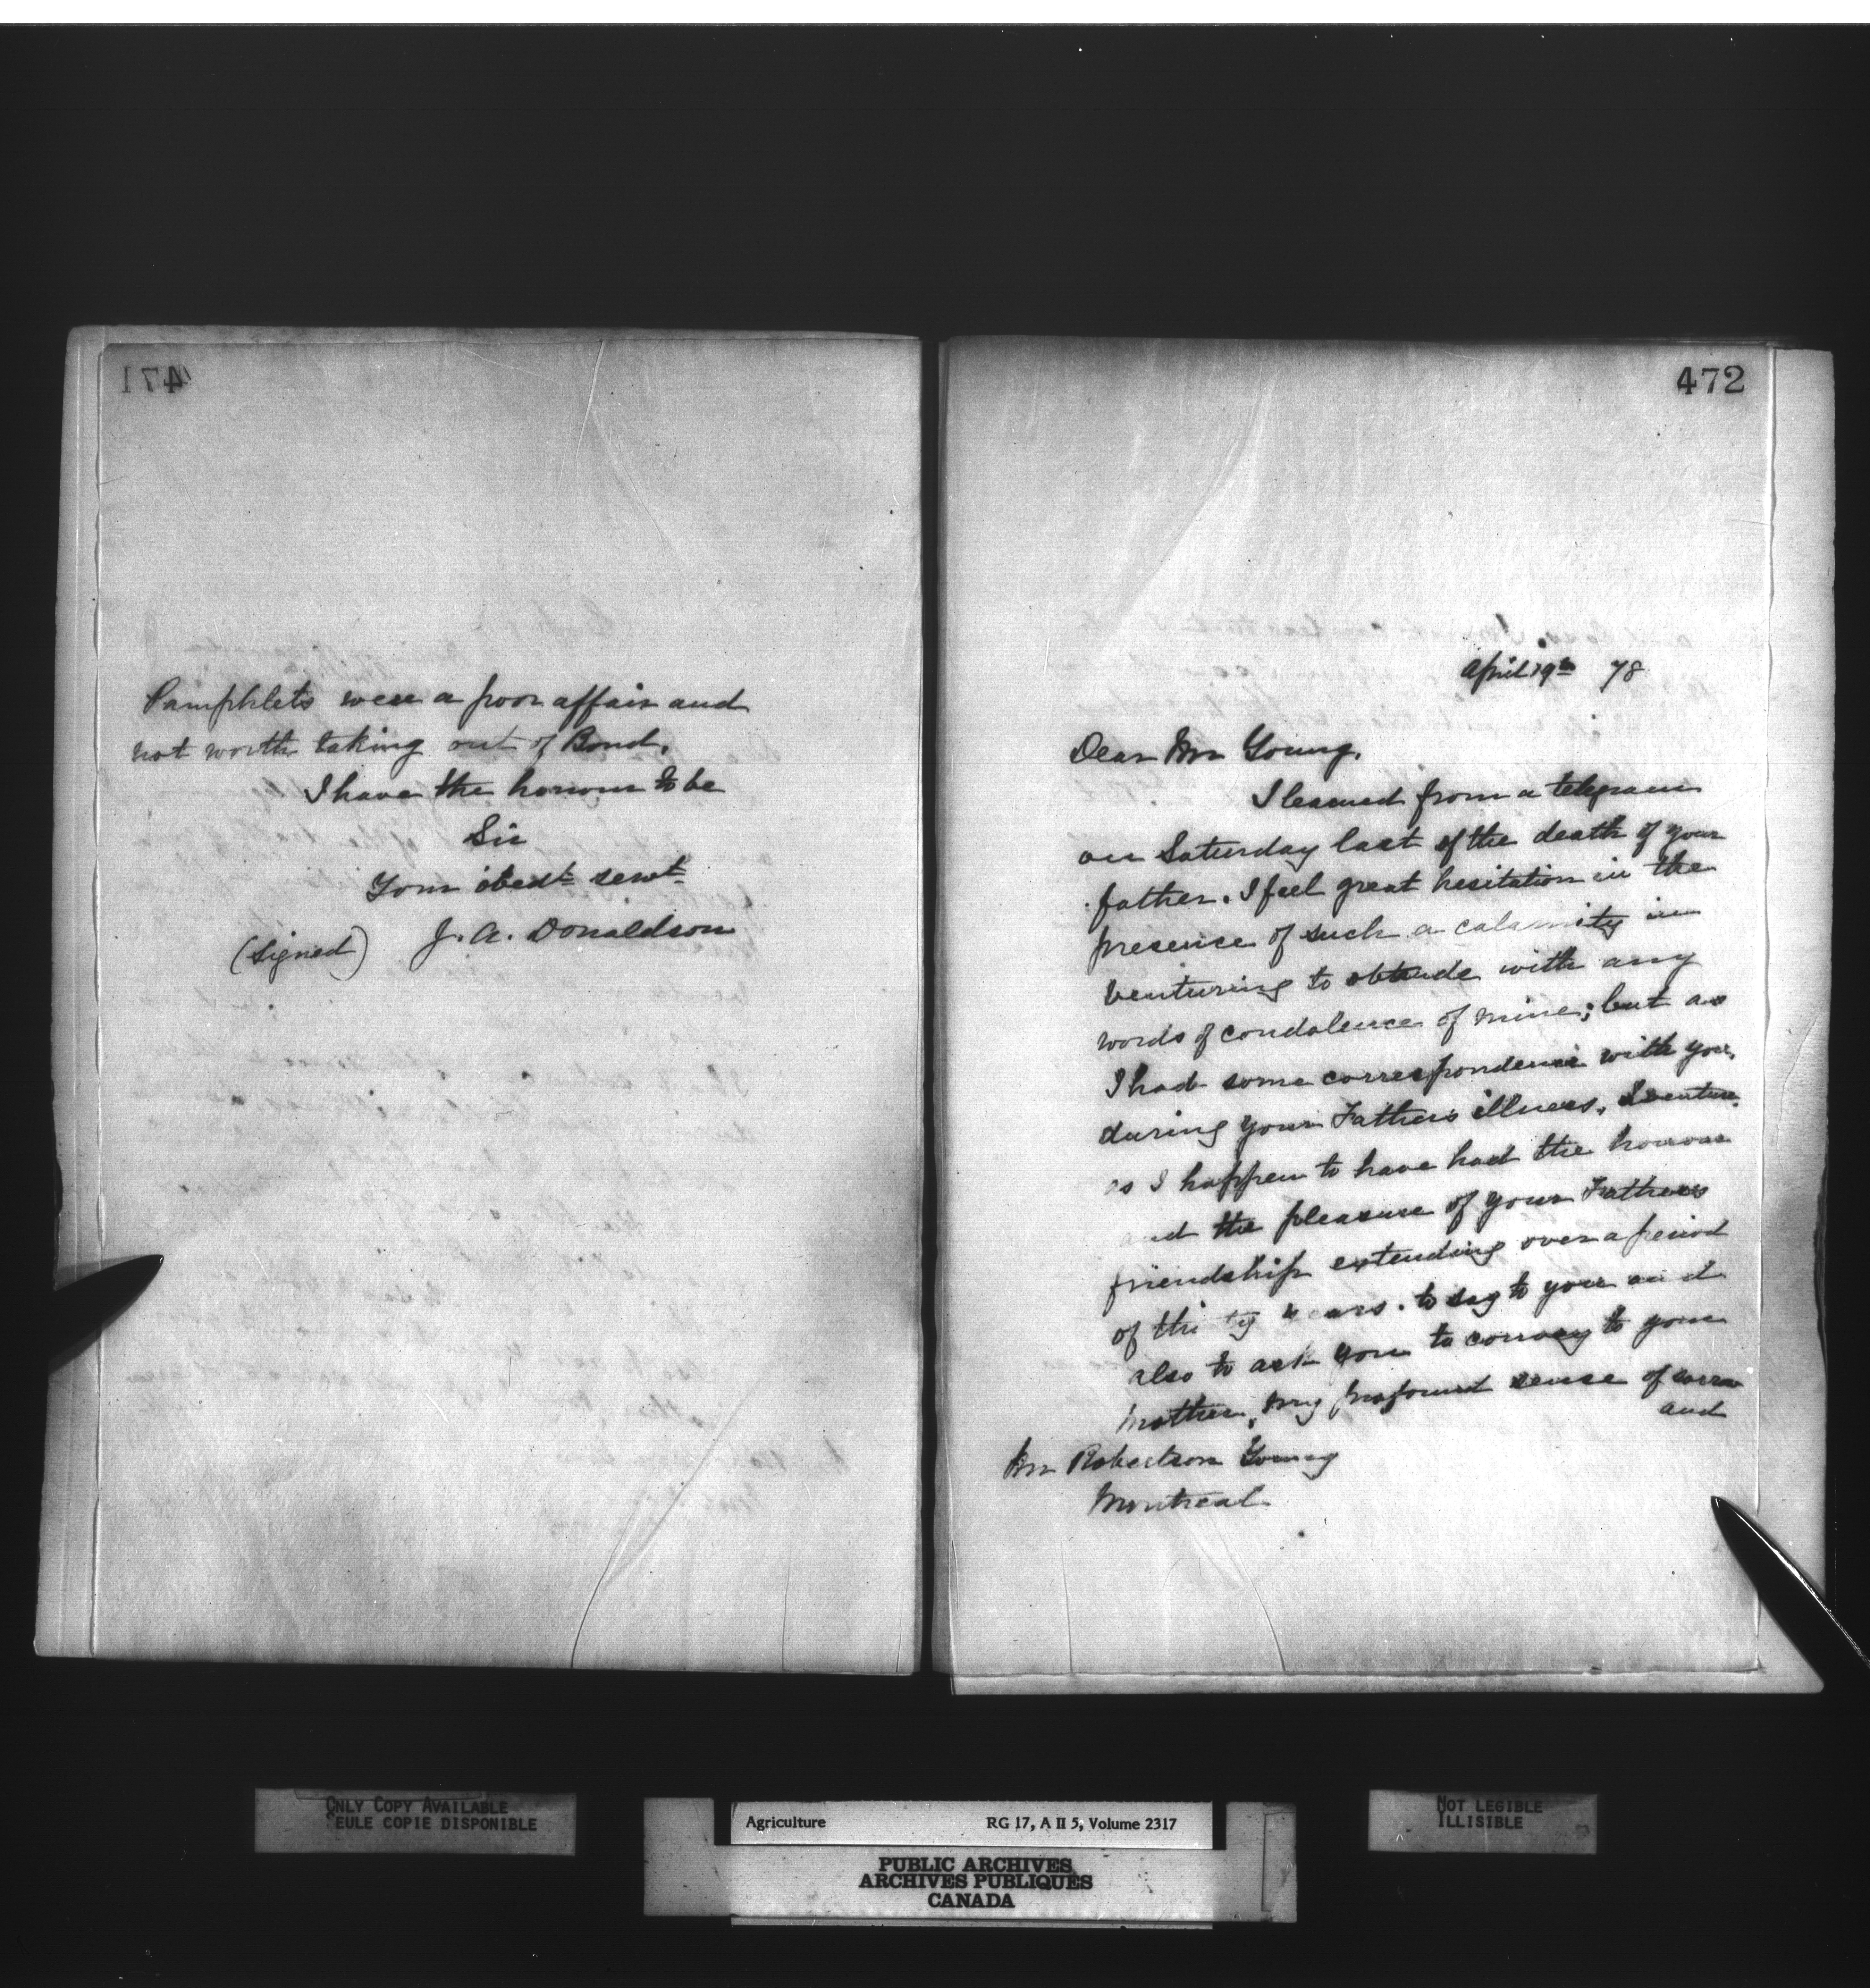 471
Pamphlets were a poor affair and
not worth taking out of Bond.
I have the honour to be
Sir
Your obedt servt
(signed) J. A. Donaldson
472
April 19th 78
Dear Mr Young,
I learned from a telegram
on Saturday last of the death of your
father. I feel great hesitation in the
presence of such a calamity in
venturing to obtrude with any
words of condolence of mine; but as
I had some correspondence with you,
during your Fathers illness, I venture,
as I happen to have had the honour
and the pleasure of your Fathers
friendship extending over a period
of thi ty years. to say to you and
also to ask you to convey to your
mother, my profound sense of sorrow
and
Mr Robertson Young
Montreal
ONLY COPY AVAILABLE
SEULE COPIE DISPONIBLE
Agriculture RG 17, A II 5, Volume 2317
PUBLIC ARCHIVES
ARCHIVES PUBLIQUES
CANADA
NOT LEGIBLE
ILLISIBLE